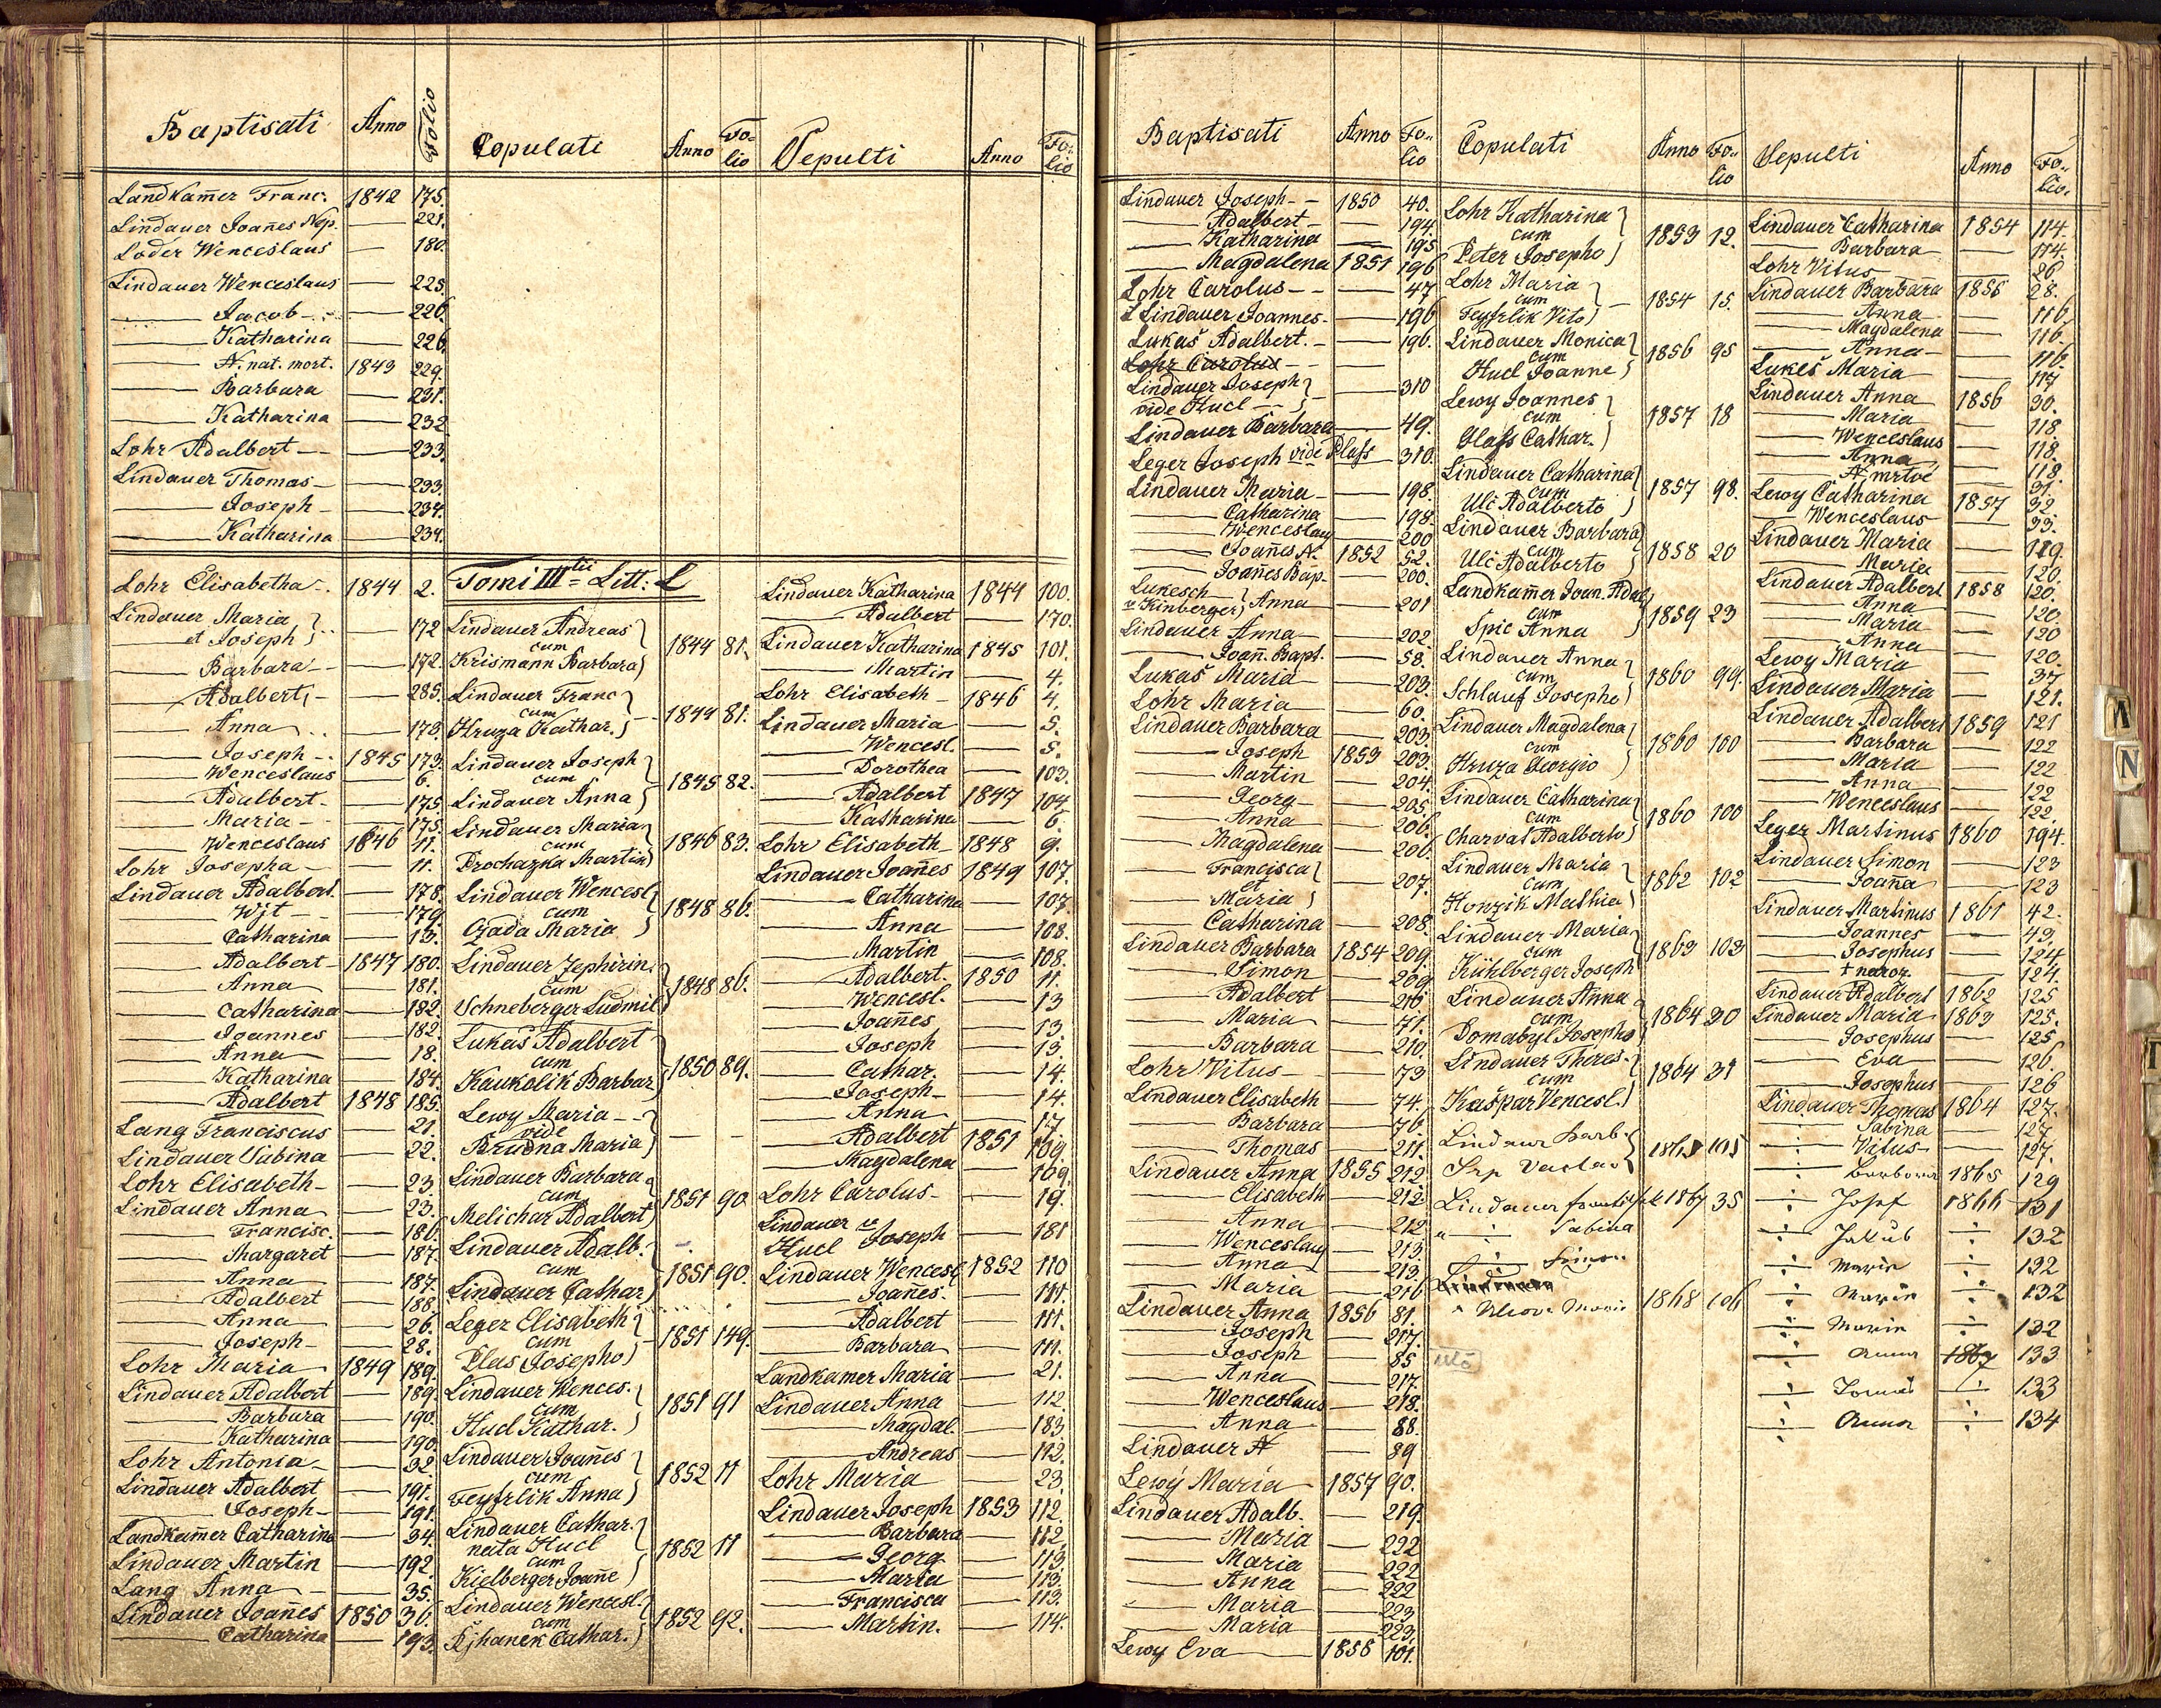 Baptisati Anno Folio
Landkam̄er Franc. 1842 175.
Lindauer Joan̄es Nep. — 221.
Loder Wenceslaus — 180.
Lindauer Wenceslaus — 225.
— Jacob — 226.
— Katharina — 226.
— N. nat. mort. 1843 229.
— Barbara — 231.
— Katharina — 232
Lohr Adalbert — 233.
Lindauer Thomas — 233.
— Joseph — 234.
— Katharina — 234.
Lohr Elisabetha 1844 2.
Lindauer Maria
et Joseph — 172
— Barbara — 172.
— Adalbert — 285.
— Anna — 173.
— Joseph 1845 173.
— Wenceslaus — 6.
— Adalbert — 175
— Maria — 175.
— Wenceslaus 1846 11.
Lohr Josepha — 11.
Lindauer Adalbert. — 178.
— Wjt — 179.
— Catharina — 13.
— Adalbert 1847 180.
— Anna — 181.
— Catharina — 182.
— Joannes — 182.
— Anna — 18.
— Katharina — 184.
— Adalbert 1848 185.
Lang Franciscus — 21.
Lindauer Sabina — 22.
Lohr Elisabeth — 23.
Lindauer Anna — 23.
— Francisc. — 186.
— Margaret — 187.
— Anna — 187.
— Adalbert — 188.
— Anna — 26.
— Joseph — 28.
Lohr Maria 1849 189.
Lindauer Adalbert — 189.
— Barbara — 190.
— Katharina — 190.
Lohr Antonia — 32.
Lindauer Adalbert — 191.
— Joseph — 191.
Landkam̄er Catharina — 34.
Lindauer Martin — 192.
Lang Anna — 35.
Lindauer Joan̄es 1850 36.
— Catharina — 193.
Copulati Anno Folio
Tomi III tii Litt: L
Lindauer Andreas
cum 1844 81.
Krismann Barbara
Lindauer Franc
cum 1844 81.
Hruza Kathar.
Lindauer Joseph
cum 1845 82.
Lindauer Anna
Lindauer Maria
cum 1846 83.
Prochazka Martin
Lindauer Wencesl
cum 1848 86.
Czada Maria
Lindauer Zephirin.
cum 1848 86.
Schneberger Ludmil
Lukaš Adalbert
cum 1850 89.
Kaukolik Barbar
Lewy Maria
vide — -
Brudna Maria
Lindauer Barbara
cum 1851 90.
Melichar Adalbert
Lindauer Adalb.
cum 1851 90.
Lindauer Cathar
Leger Elisabeth
cum 1851 149.
Plas Josepho
Lindauer Wences.
cum 1851 91
Hucl Kathar.
Lindauer Joan̄es
cum 1852 11
Feyfrlik Anna
Lindauer Cathar.
nata Hucl
cum 1852 11
Kielberger Joan̄e
Lindauer Wencesl.
cum 1852 92.
Ržhanek Cathar.
Sepulti Anno Folio
Lindauer Katharina 1844 100.
— Adalbert — 170.
Lindauer Katharina 1845 101.
— Martin — 4.
Lohr Elisabeth 1846 4.
Lindauer Maria — 5.
— Wencesl. — 5.
— Dorothea — 103.
— Adalbert 1847 104.
— Katharina — 6.
Lohr Elisabeth 1848 9.
Lindauer Joan̄es 1849 107.
— Catharina — 107.
— Anna — 108.
— Martin — 108.
— Adalbert. 1850 11.
— Wencesl. — 13
— Joan̄es — 13.
— Joseph — 13.
— Cathar. — 14.
— Joseph — 14.
— Anna — 17.
— Adalbert 1851 109.
— Magdalena — 109.
Lohr Carolus — 19.
Lindauer
Hucl Joseph — 181
Lindauer Wencesl 1852 110
— Joan̄es. — 111.
— Adalbert — 111.
— Barbara — 111.
Landkamer Maria — 21.
Lindauer Anna — 112.
— Magdal. — 183.
— Andreas — 112.
Lohr Maria — 23.
Lindauer Joseph 1853 112.
— Barbara — 112.
— Georg — 113.
— Maria — 113.
— Francisca — 113.
— Martin. — 114.
Baptisati Anno Folio
Lindauer Joseph 1850 40.
— Adalbert — 194.
— Katharina — 195
— Magdalena 1851 196
Lohr Carolus — 47
Lindauer Joannes — 196
Lukaš Adalbert. — 196.
Lohr Carolus — —
Lindauer Joseph
vide Hucl — 310
Lindauer Barbara — 49.
Leger Joseph vide Plass — 310.
Lindauer Maria — 198.
— Catharina — 198.
— Wenceslaus — 200
— Joan̄es N. 1852 52.
— Joan̄es Bap. — 200.
Lukesch
Kinberger Anna — 201
Lindauer Anna — 202
— Joan̄. Bapt. — 58.
Lukaš Maria — 203.
Lohr Maria — 60.
Lindauer Barbara — 203.
— Joseph 1853 203.
— Martin — 204.
— Georg — 205.
— Anna — 206.
— Magdalena — 206.
— Francisca
et — 207.
— Maria
— Catharina — 208.
Lindauer Barbara 1854 209.
— Simon — 209.
— Adalbert — 210
— Maria — 71.
— Barbara — 210.
Lohr Vitus — 73
Lindauer Elisabeth — 74.
— Barbara — 76.
— Thomas — 211.
Lindauer Anna 1855 212.
— Elisabeth — 212.
— Anna — 212.
— Wenceslaus — 213.
— Anna — 213.
— Maria — 216
Lindauer Anna 1856 81.
— Joseph — 217.
— Joseph — 85
— Anna — 217.
— Wenceslaus — 218.
— Anna — 88.
Lindauer N — 89
Lewý Maria 1857 90.
Lindauer Adalb. — 219.
— Maria — 222
— Maria — 222
— Anna — 222
— Maria — 223
— Maria — 223.
Lewy Eva 1858 101.
Copulati Anno Folio
Lohr Katharina
cum 1853 12.
Peter Josepho
Lohr Maria
cum 1854 15.
Feyfrlik Vito
Lindauer Monica
cum 1856 95
Hucl Joanne
Lewy Joannes
cum 1857 18
Glass Cathar.
Lindauer Catharina
cum 1857 98.
Ulč Adalberto
Lindauer Barbara
cum 1858 20
Ulč Adalberto
Landkam̄er Joan. Adal
cum 1859 23
Spic Anna
Lindauer Anna
cum 1860 99.
Schlauf Josepho
Lindauer Magdalena
cum 1860 100
Hruza Georgio
Lindauer Catharina
cum 1860 100
Charvat Adalberto
Lindauer Maria
cum 1862 102
Honzik Mathia
Lindauer Maria
cum 1863 103
Kühlberger Joseph
Lindauer Anna
cum 1864 30
Domabyl Josepho
Lindauer Theres.
cum 1864 31
Kašpar Vencesl.
Lindaur Barb. 1865 105
Srp Vaclav
Lindauer 1867 35
" — Sabina
— Simon
" Ulčova Marie 1868 106
Sepulti Anno Folio.
Lindauer Catharina 1854 114.
— Barbara — 114.
Lohr Vitus — 26
Lindauer Barbara 1855 28.
— Anna — 116.
— Magdalena — 116.
— Anna — 116.
Lukeš Maria — 117
Lindauer Anna 1856 30.
— Maria — 118
— Wenceslaus — 118.
— Anna — 118.
— N mrtvé — 31.
Lewy Catharina 1857 32.
— Wenceslaus — 33.
Lindauer Maria — 119.
— Maria — 120.
Lindauer Adalbert 1858 120.
— Anna — 120.
— Maria — 120
— Anna — 120.
Lewy Maria — 37
Lindauer Maria — 121.
Lindauer Adalbert 1859 121
— Barbara — 122
— Maria — 122
— Anna — 122
— Wenceslaus — 122.
Leger Martinus 1860 194.
Lindauer Simon — 123
— Joan̄a — 123
Lindauer Martinus 1861 42.
— Joannes — 43.
— Josephus — 124
— † naroz. — 124.
Lindauer Adalbert 1862 125
Lindauer Maria 1863 125.
— Josephus — 125
— Eva — 126.
— Josephus — 126
Lindauer Thomas 1864 127.
— Sabina — 127
— Vitus — 127.
— Barbora 1865 129
— Josef 1866 131
— Jakub — 132
— Marie — 132
— Marie — 132
— Marie — 132
— Anna 1867 133
— Tomáš — 133
— Anna — 134
N